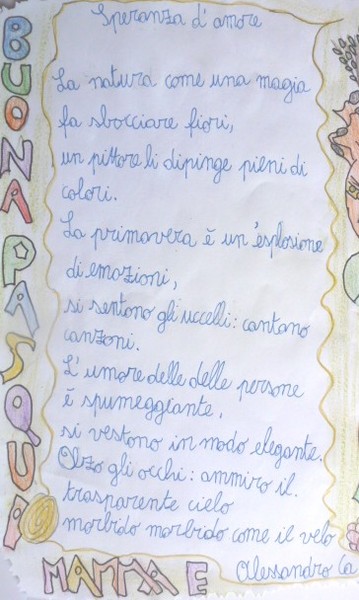 Speranza d'amore
BUONA PASQUA
La natura come una magia
fa sbocciare fiori,
un pittore li dipinge pieni di
colori.
La primavera è un'esplosione
di emozioni,
si sentono gli uccelli: cantano
canzoni.
L'umore delle delle persone
è spumeggiante,
si vestono in modo elegante.
Olzo gli occhi: ammiro il.
trasparente cielo
morbido morbido come il velo
MAMMA E
Alessandro